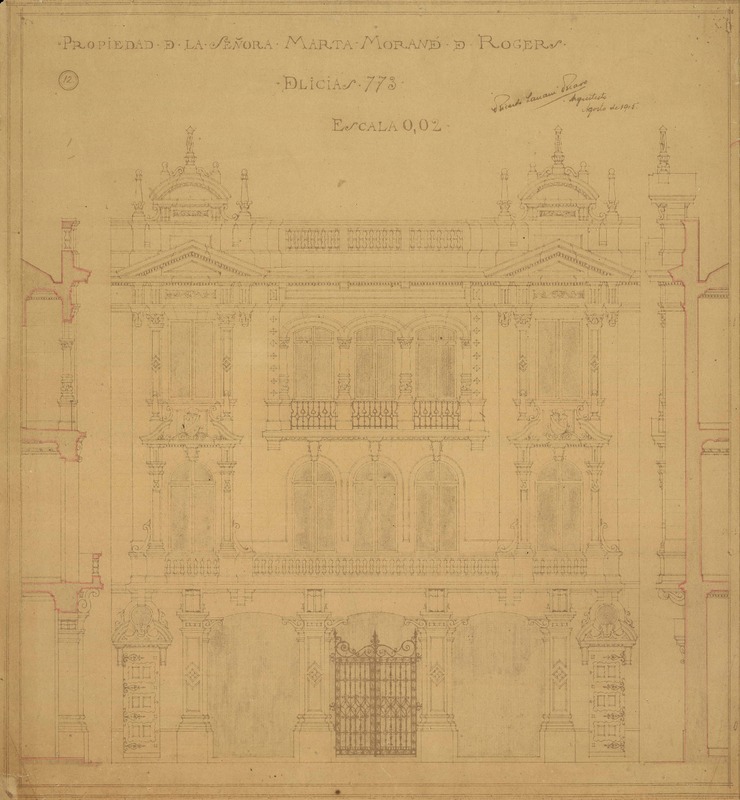 ·PROPIEDAD·D·LA·SEÑORA·MARTA·MORANÉ·D·ROGERS·
12
·DLICIAS·773·
Arquitecto
Agosto de 1915
ESCALA 0,02·